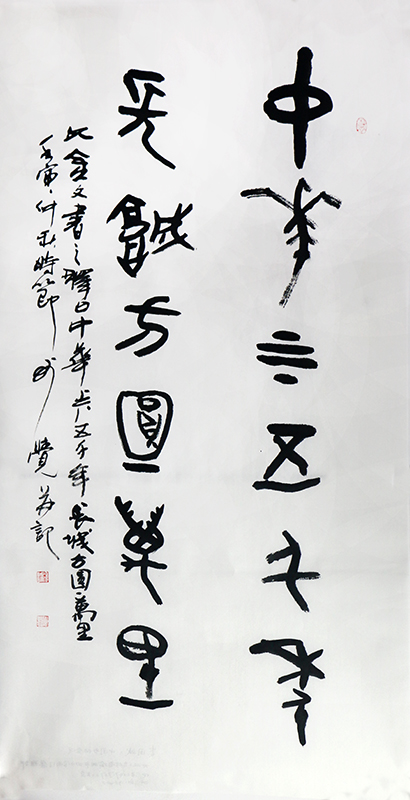 中華上下五千年
長城方圓萬里
此金文書之釋曰中華上下五千年長城方圓萬里
壬寅仲秋時節 覺 記